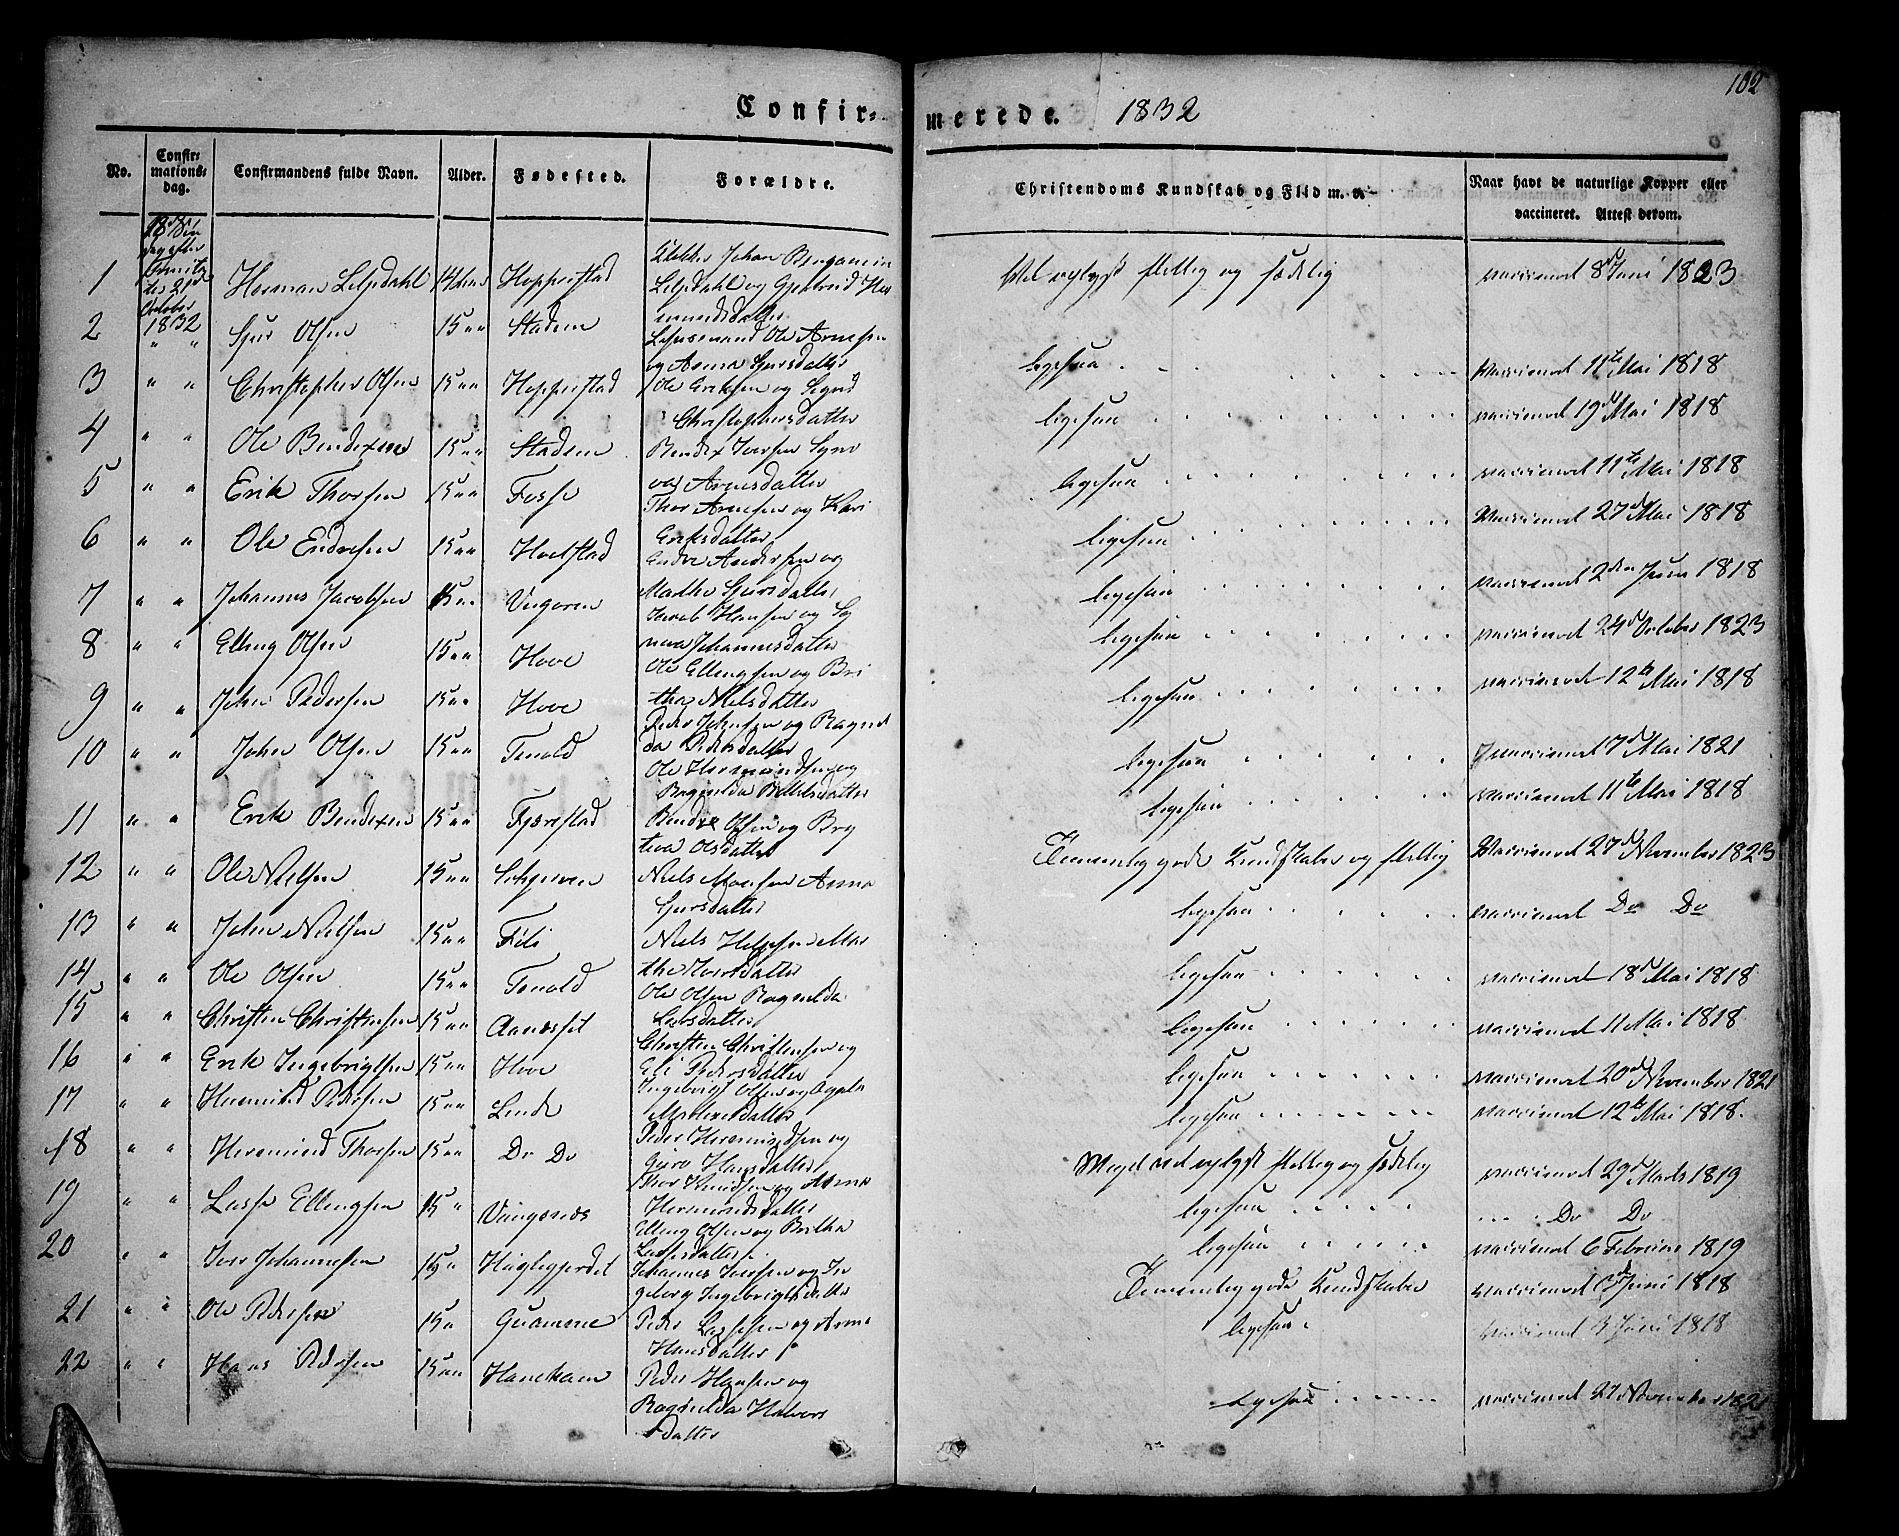 102
Confir- merede. 1832
No. Confirmationsdag. Confirmandens fulde Navn. Alder. Fødested. Forældre. Christendoms Kundskab og Flid m. v. Naar havt de naturlige Kopper eller vaccineret. Attest derom.
18de Søndag efter Trinitatis 21de October 1832
1 Herman Liljedahl 14 Hopperstad Klokker Johan Benjamin Liljedahl og Gjertrud Hermundsdatter Vel oplyst flittig og sædelig vaccineret 8de Juni 1823
2 " " Sjur Olsen 15 " " Stadem Lehnsmand Ole Arnesen og Anna Sjursdatter ligesaa vaccineret 11te Mai 1818
3 " " Christopher Olsen 15 " " Hopperstad Ole Eriksen og Sigrid Christophersdatter ligesaa vaccineret 19de Mai 1818
4 " " Ole Bendixen 15 " " Stadem Bendix Iversen Synneva Arnesdatter ligesaa vaccineret 11te Mai 1818
5 " " Erik Thorsen 15 " " Fosse Thor Arnesen og Kari Eriksdatter ligesaa Vaccineret 27de Mai 1818
6 " " Ole Endresen 15 " " Hoelstad Endre Andersen og Marthe Sjursdatter ligesaa vaccineret 2den Juni 1818
7 " " Johannes Jacobsen 15 " " Vigøren Jacob Hansen og Synneva Johannesdatter ligesaa vaccineret 24de October 1823
8 " " Elling Olsen 15 " " Hove Ole Ellingsen og Britha Nielsdatter ligesaa vaccineret 12te Mai 1818
9 " " John Pedersen 15 " " Hove Peder Johnsen og Ragnilda Pedersdatter ligesaa vaccineret 17de Mai 1821
10 " " John Olsen 15 " " Tenold Ole Hermundsen og Ragnilda ligesaa vaccineret 11te Mai 1818
11 " " Erik Bendixen 15 " " Fjærestad Bendix Olsen og Brytteva Olsdatter Temmelig gode Kundskaber og flittig Vaccineret 27de November 1823
12 " " Ole Nielsen 15 " " Niels Monsen Anna Sjursdatter ligesaa vaccineret Do Do
13 " " John Nielsen 15 " " Feli Niels Helgesen Marthe Iversdatter ligesaa vaccineret 18de Mai 1818
14 " " Ole Olsen 15 " " Tenold Ole Olsen Ragnilda Larsdatter ligesaa vaccineret 11 Mai 1818
15 " " Christen Christensen 15 " " Aanesset Christen Christensen og Eli Pedersdatter ligesaa vaccineret 20de November 1821
16 " " Erik Ingebrigtsen 15 " " Hove Ingebrigt Olsen og ligesaa vaccineret 12te Mai 1818.
17 " " Hermund Pedersen 15 " " Linde Peder Hermundsen og Guro Hansdatter Meget vel oplyst flittig og sædelig vaccineret 29de Marts 1819
18 " " Hermund Thorsen 15 " " Do Do Thor Knudsen og Anna Hermundsdatter ligesaa Do Do
19 " " Lasse Ellingsen 15 " Vangsnes Elling Olsen og Britha Lassesdatter ligesaa vaccineret 6 Februar 1819
20 " " Iver Johannesen 15 " Haglegjerdet Johannes Iversen og Ingeborg Ingebrigtsdatter Temmelig gode Kundskaber vaccineret Juni 1818
21 " " Ole Pedersen 15 " Guamme Peder Lassesen og Anna Hansdatter ligesaa vaccineret Juni 1818
22 " " Hans Pedersen 15 " " Hanekam Peder Hansen og Ragnilda Halvorsdatter ligesaa vaccineret 27 November 1821